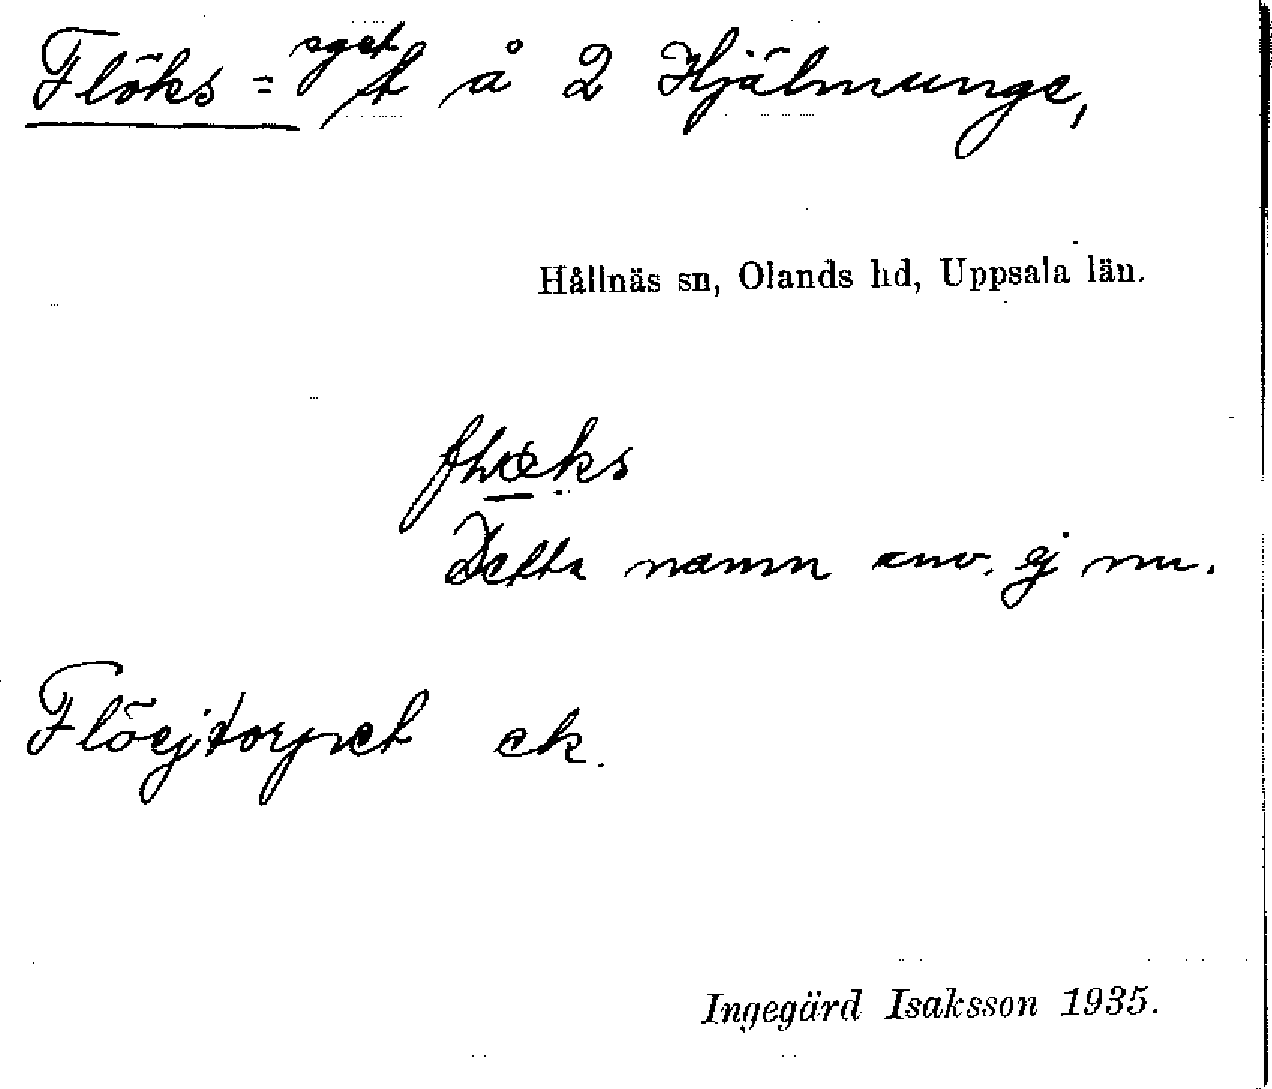 Flöks = eget
t å 2 Hjälmunge,
Hållnäs sn, Olands hd, Uppsala län.
Detta namn anv. ej nu.
Flöejtorpet ek.
Ingegärd Isaksson 1935.